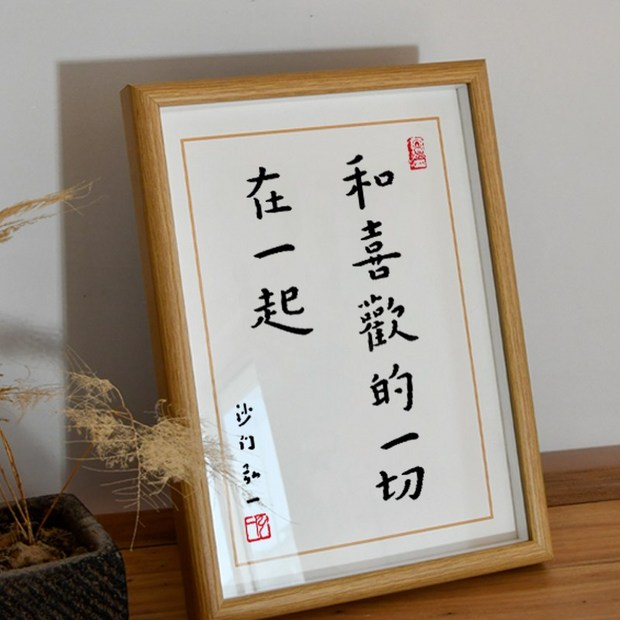 和喜歡的一切
在一起
沙门弘一